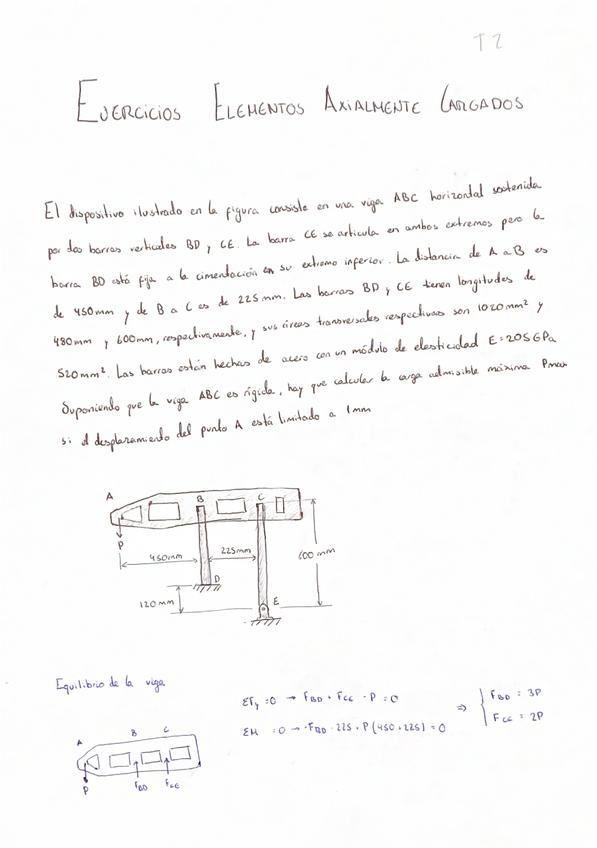 T2
EJERCICIOS ELEMENTOS AXIALMENTE CARGADOS
El dispositivo ilustrado en la figura consiste en una viga ABC horizontal sostenida
por dos barras verticales BD y CE. La barra CE se articula en ambos extremos pero la
barra BD está fija a la cimentación en su extremo inferior. La distancia de A a B es
de 450mm y de B a C es de 225mm. Las barras BD y CE tienen longitudes de
480mm y 600mm, respectivamente, y sus áreas transversales respectivas son 1020mm² y
520mm². Las barras están hechas de acero con un módulo de elasticidad E=205GPa
Suponiendo que la viga ABC es rígida, hay que calcular la carga admisible máxima Pmax
si el desplazamiento del punto A está limitado a 1mm
A B C
P
450mm 225mm 600 mm
D
120mm E
Equilibrio de la viga
ΣFy =0 → FBD + FCE - P = 0
ΣM =0 → -FBD · 225 + P(450+225) = 0
⇒ { FBD = 3P
FCE = 2P
A B C
P FBD FCE